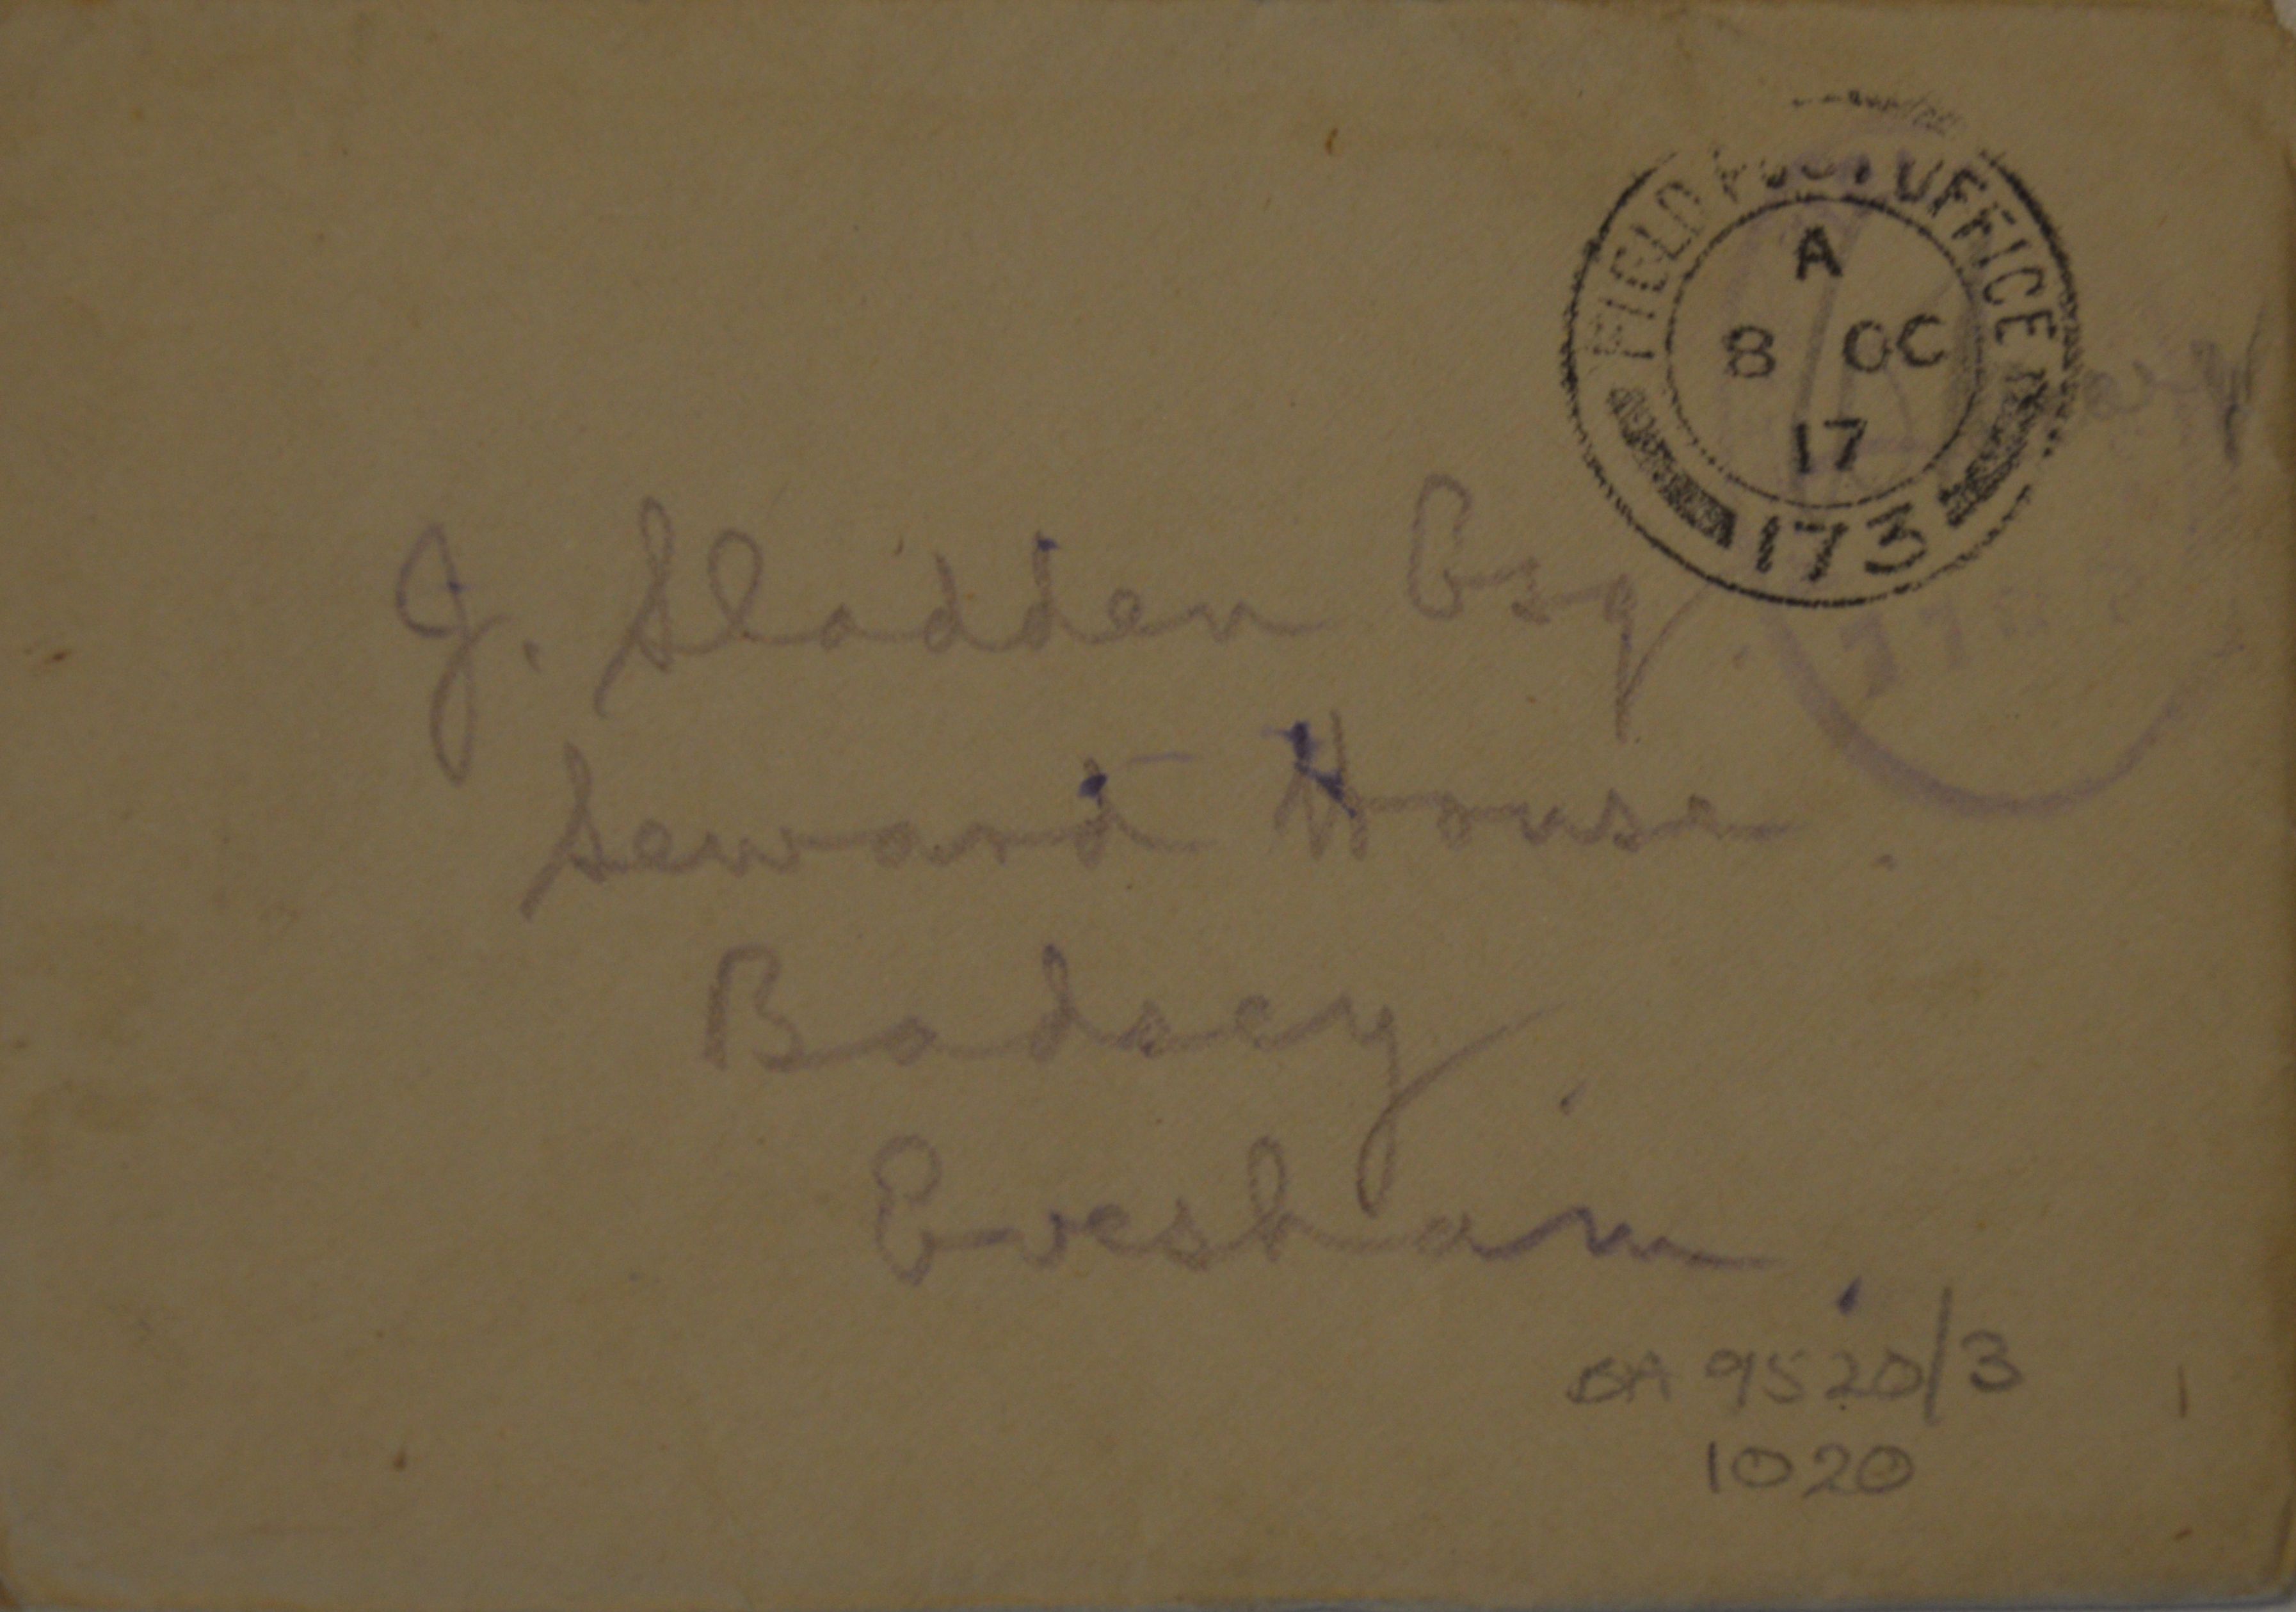 FIELD POST OFFICE
A
8 OC
17
173
J. Sladden Esq.
Seward House.
Badsey.
Evesham.
BA 9520/3
1020